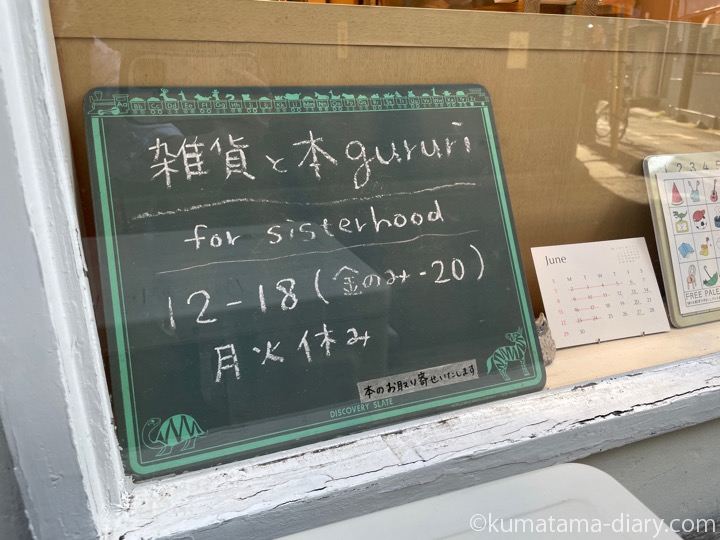 雑貨と本gururi
for sisterhood
12-18(金のみ-20)
月火休み
本のお取り寄せいたします
DISCOVERY SLATE
June
2 3 4 5
FREE PALE
©kumatama-diary.com